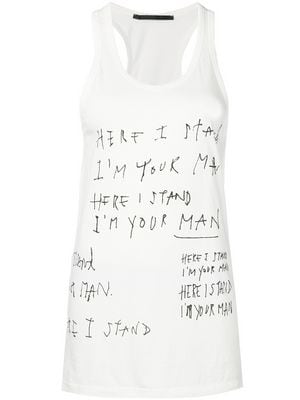 HERE I STAN
I'M YOUR MAN
HERE I STAND
I'M YOUR MAN
stand
R MAN.
RE I STAND
HERE I STAND
I'M YOUR MAN
HERE I STAND
I'M YOUR MAN